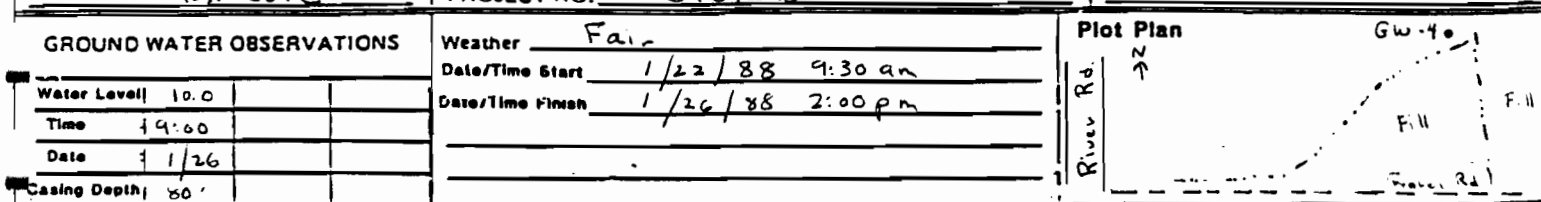 PROJECT NO.
GROUND WATER OBSERVATIONS
Water Level 10.0
Time 9:00
Date 1/26
Casing Depth 80'
Weather Fair
Date/Time Start 1/22/88 9:30 am
Date/Time Finish 1/26/88 2:00 pm
Plot Plan
GW-4
N
River Rd.
Fill
Fill
Rd